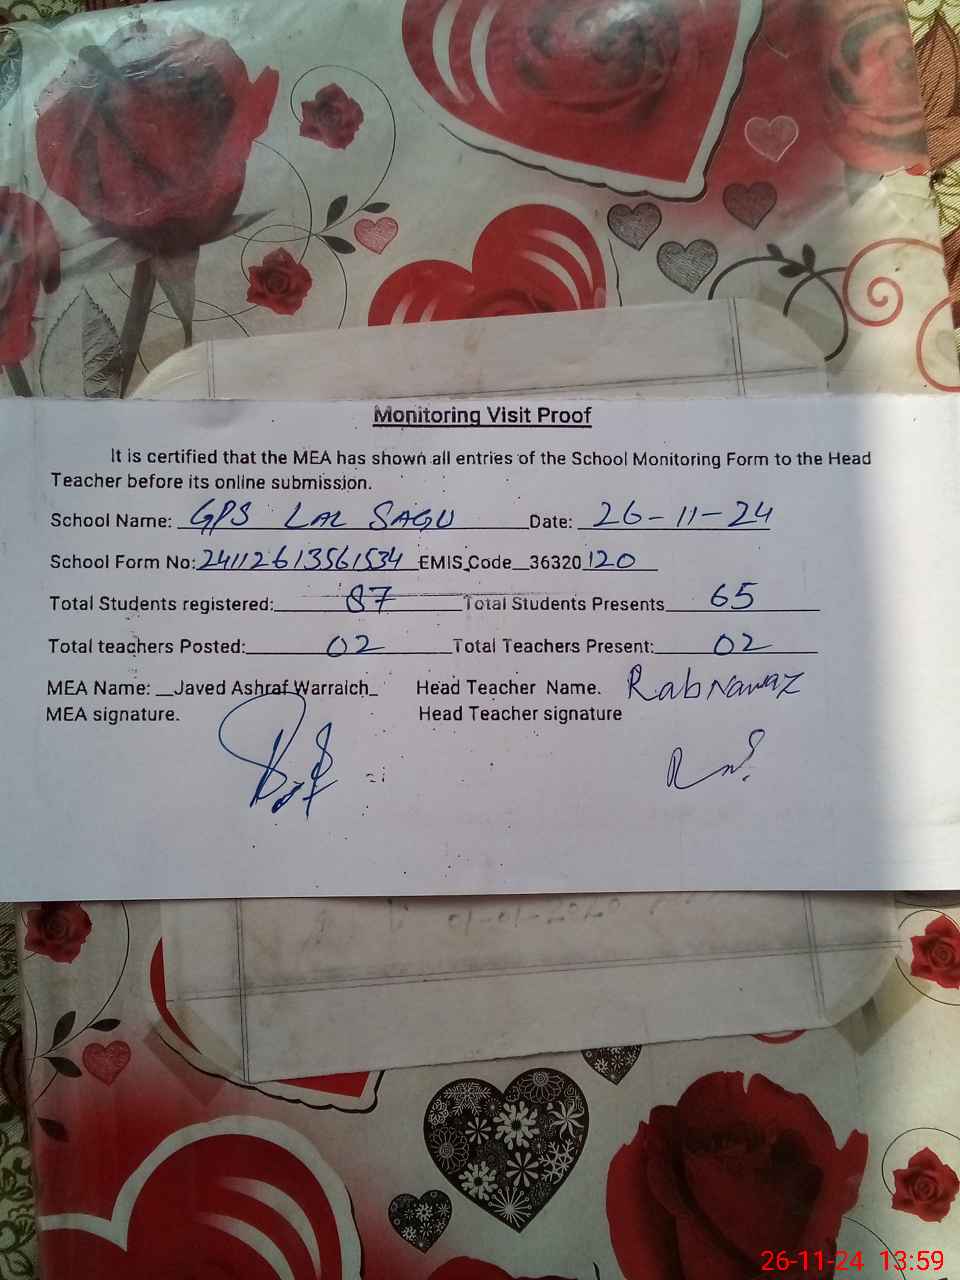 Monitoring Visit Proof
It is certified that the MEA has shown all entries of the School Monitoring Form to the Head
Teacher before its online submission.
School Name: GPS LAL SAGU Date: 26-11-24
School Form No: 24112613561534 EMIS Code 36320120
Total Students registered: 87 Total Students Presents 65
Total teachers Posted: 02 Total Teachers Present: 02
MEA Name: Javed Ashraf Warraich Head Teacher Name. Rab Nawaz
MEA signature. Head Teacher signature
26-11-24 13:59